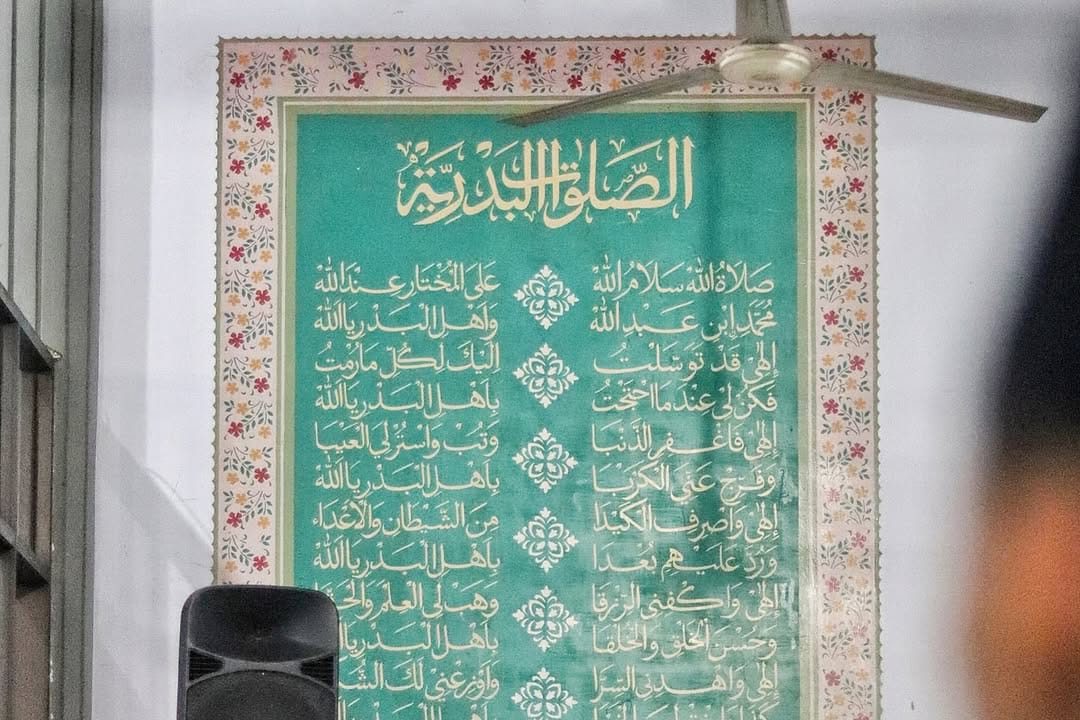 الصَّلَوٰاتُ البَدْرِيَّةْ
صَلَاةُ اللّٰهْ سَلَامُ اللّٰهْ عَلَى الْمُخْتَارِ عِنْدَاللّٰهْ
مُحَمَّدِابْنِ عَبْدِاللّٰهْ وَاَهْلِ الْبَدْرِيَااَللّٰهْ
اِلٰهِيْ قَدْ تَوَسَّلْتُ اِلَيْكَ لِكُلِّ مَارُمْتُ
فَكُنْ لِيْ عِنْدَمَااحْتَجْتُ بِاَهْلِ الْبَدْرِيَااَللّٰهْ
اِلٰهِيْ فَاغْفِرِالذَّنْبَا وَتُبْ وَاسْتُرْلِيَ الْعَيْبَا
وَفَرِّجْ عَنِّيَ الْكَرْبَا بِاَهْلِ الْبَدْرِيَااَللّٰهْ
اِلٰهِيْ وَاصْرِفِ الْكَيْدَا مِنَ الشَّيْطَانِ وَالْاَعْدَاءِ
وَرُدَّ عَلَيْهِمْ بُعْدَا بِاَهْلِ الْبَدْرِيَااَللّٰهْ
اِلٰهِيْ وَاكْفِنِي الرِّزْقَا وَهَبْ لِي الْعِلْمَ
وَحُسْنَ الْخَلْقِ وَالْخُلُقَا بِاَهْلِ الْبَدْرِ
اِلٰهِيْ وَاهْدِنِي السِّرَّا وَاَوْزِعْنِيْ لَكَ